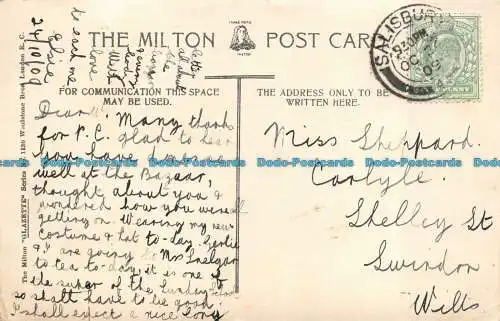 THE MILTON POST CARD
FOR COMMUNICATION THIS SPACE
MAY BE USED.
THE ADDRESS ONLY TO BE
WRITTEN HERE.
SALISBURY
9 30 PM
OC
09
PENNY
The Milton "GLAZETTE" Series Woolstone Bros. London E.C.
Dear Many thanks
for P.C. glad to hear
you have done so
well at the Bazaar,
thought about you &
wondered how you were all
getting on. Wearing my new
costume & hat to-day. Gertie
& I are going to Mrs
to tea to-day, it is one of
the super of the Sunday School
so shall have to be good.
I shall expect a nice long
letter
all about
the
Bazaar
love
to each one
Elsie
24/10/09
Miss Sheppard.
Carlyle.
Shelley St
Swindon
Wilts
Dodo-Postcards Dodo-Postcards Dodo-Postcards Dodo-Postcards